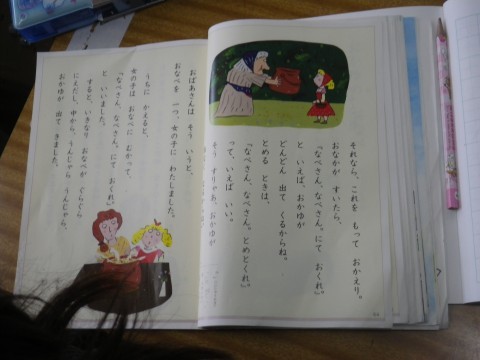 それなら、これを もって おかえり。
おなかが すいたら、
「なべさん、なべさん。にて おくれ。」
と いえば、おかゆが
どんどん 出て くるからね。
とめる ときは、
「なべさん、なべさん。とめとくれ。」
って、いえば いい。
そう すりゃあ、おかゆが
おばあさんは そう いうと、
おなべを 一つ、女の子に わたしました。
うちに かえると、
女の子は おなべに むかって、
「なべさん、なべさん。にて おくれ。」
と いいました。
すると、いきなり おなべが ぐらぐら
にえだし、中から、うんじゃら うんじゃら、
おかゆが 出て きました。